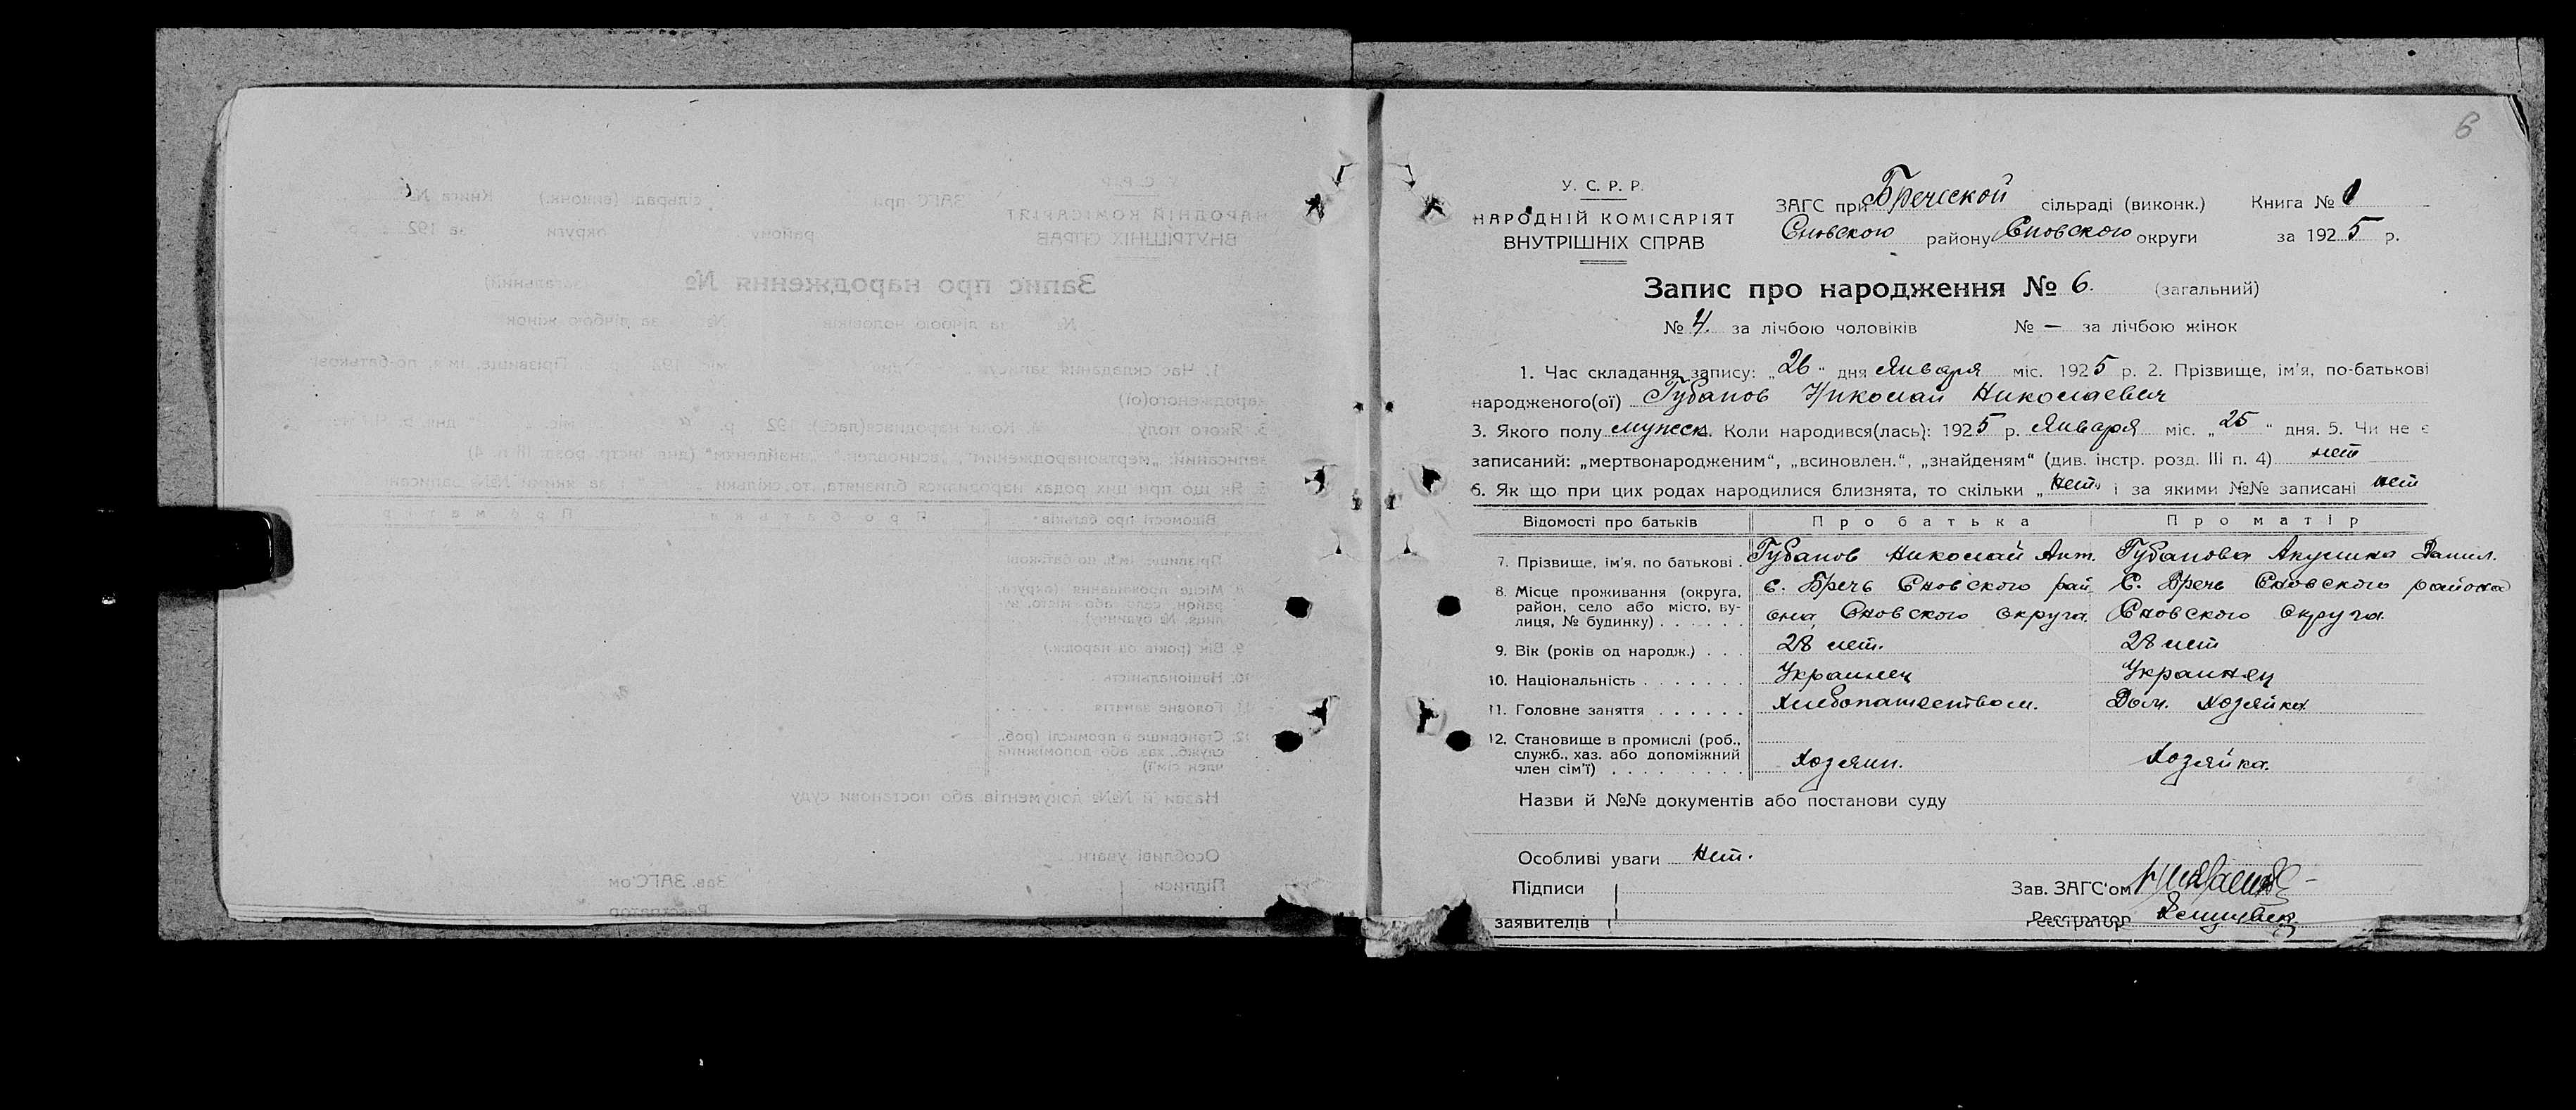 6
У. С. Р. Р.
НАРОДНІЙ КОМІСАРІЯТ
ВНУТРІШНІХ СПРАВ
ЗАГС при Бречской сільраді (виконк.) Книга № 1
Сновского району Сновского округи за 1925 р.
Запис про народження № 6. (загальний)
№ 4. за лічбою чоловіків № — за лічбою жінок
1. Час складання запису: „26“ дня Января міс. 1925 р. 2. Прізвище, ім'я, по-батькові
народженого(ої) Губанов Николай Николаевич
3. Якого полу мужск. Коли народився(лась): 1925 р. Января міс. „25“ дня. 5. Чи не є
записаний: „мертвонародженим“, „всиновлен.“, „знайденям“ (див. інстр. розд. III п. 4) нет
6. Як що при цих родах народилися близнята, то скільки „нет“ і за якими №№ записані нет
Відомості про батьків Про батька Про матір
7. Прізвище, ім'я, по батькові . Губанов Николай Ант. Губанова Акулина Данил.
8. Місце проживання (округа, район, село або місто, вулиця, № будинку) . . . . . . с. Бречь Сновского района, Сновского округа. С. Бречь Сновского района Сновского округа.
9. Вік (років од народж.) . . . 28 лет. 28 лет
10. Національність . . . . . . . Украинец Украинец
11. Головне заняття . . . . . . Хлебопашеством. Дом. хозяйка
12. Становище в промислі (роб., служб., хаз. або допоміжний член сім'ї) . . . . . . . . . Хозяин. Хозяйка.
Назви й №№ документів або постанови суду
Особливі уваги Нет.
Підписи
заявителів
Зав. ЗАГС'ом
Реєстратор